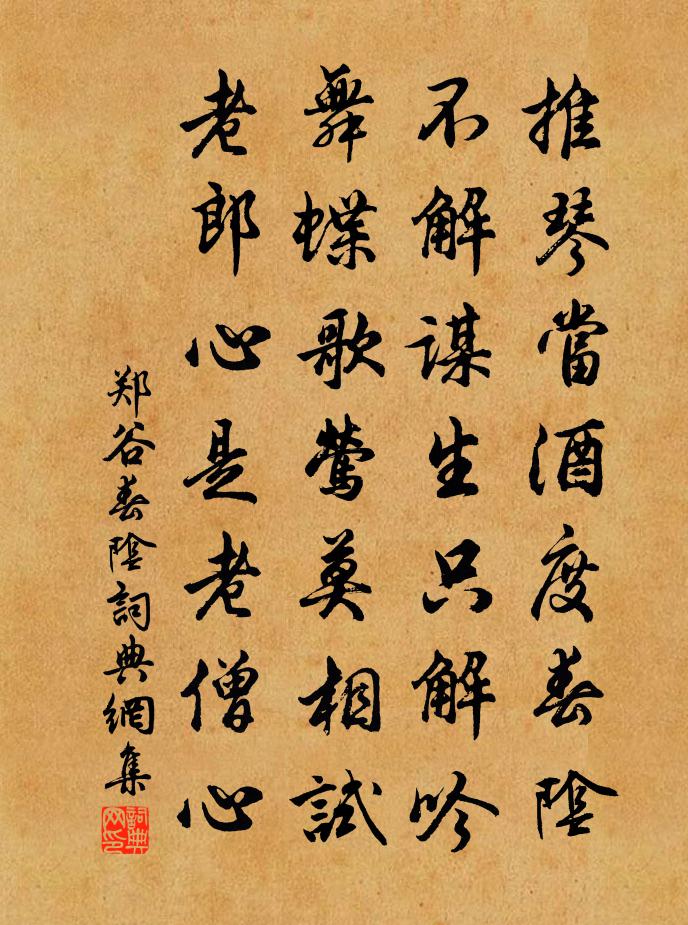 推琴當酒度春陰
不解謀生只解吟
舞蝶歌鶯莫相試
老郎心是老僧心
郑谷春陰詞典網集
詞典网印